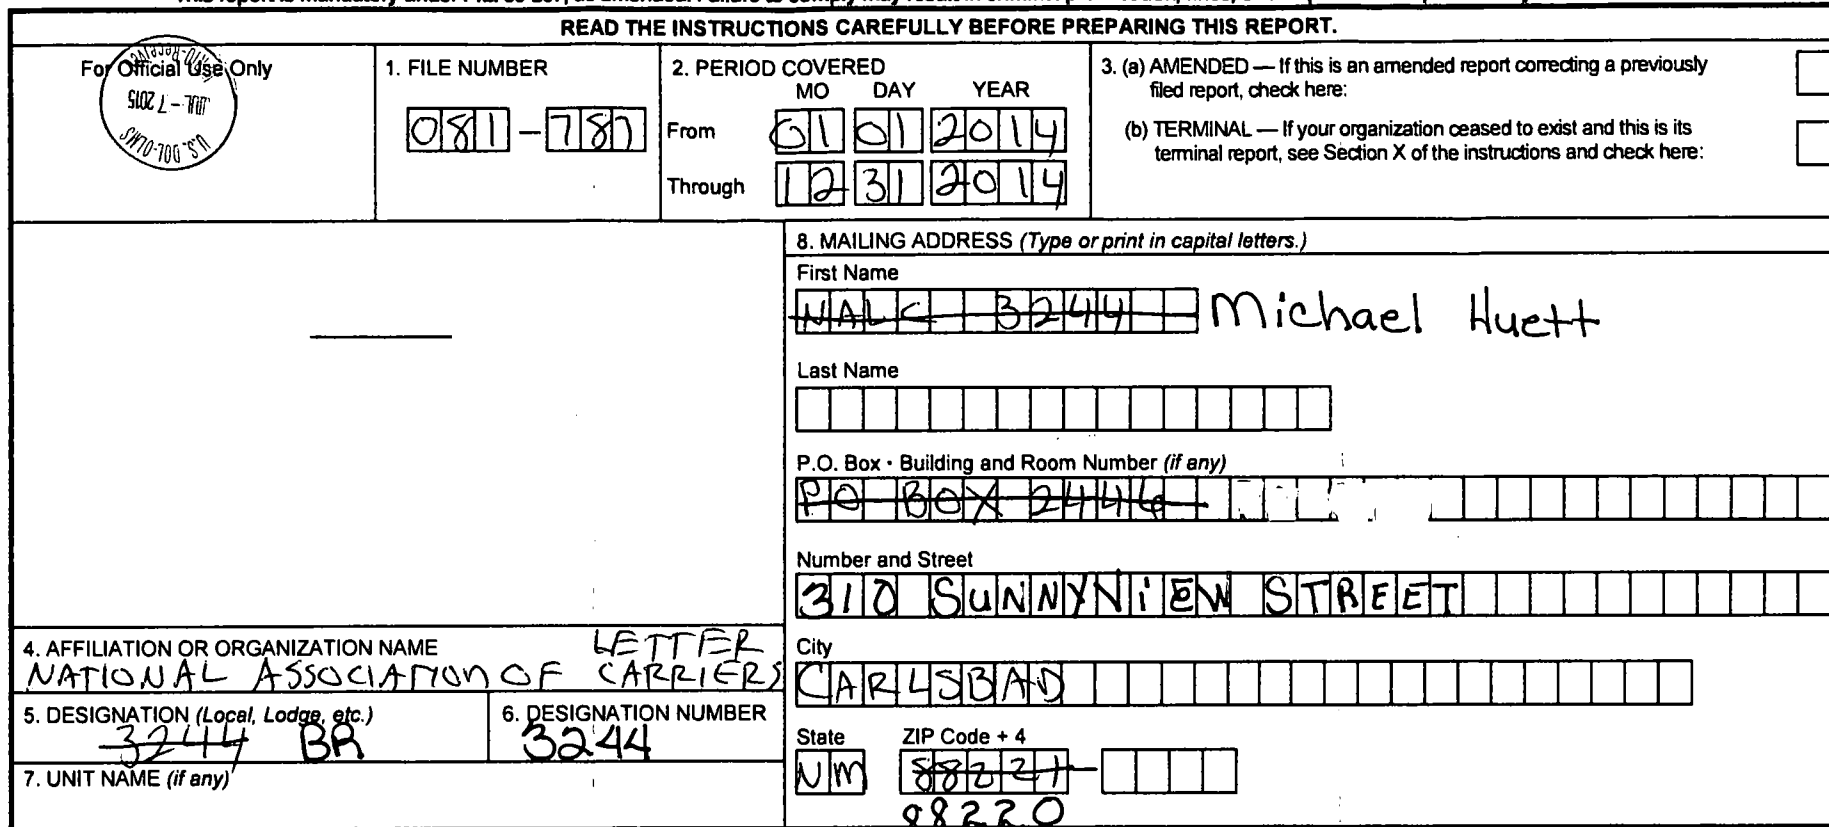 READ THE INSTRUCTIONS CAREFULLY BEFORE PREPARING THIS REPORT.
For Official Use Only
U.S. DOL-OLMS
JUL - 7 2015
1. FILE NUMBER
081 - 787
2. PERIOD COVERED
MO DAY YEAR
From 01 01 2014
Through 12 31 2014
3. (a) AMENDED — If this is an amended report correcting a previously
filed report, check here:
(b) TERMINAL — If your organization ceased to exist and this is its
terminal report, see Section X of the instructions and check here:
4. AFFILIATION OR ORGANIZATION NAME
NATIONAL ASSOCIATION OF LETTER CARRIERS
5. DESIGNATION (Local, Lodge, etc.)
3244 BR
6. DESIGNATION NUMBER
3244
7. UNIT NAME (if any)
8. MAILING ADDRESS (Type or print in capital letters.)
First Name
NALC 3244 Michael Huett
Last Name
P.O. Box · Building and Room Number (if any)
PO BOX 2446
Number and Street
310 SUNNYVIEW STREET
City
CARLSBAD
State
NM
ZIP Code + 4
88221
88220